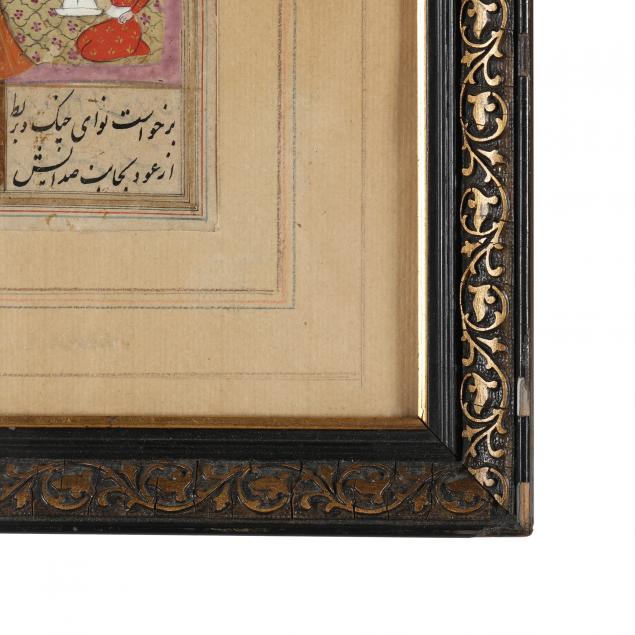 برخواست نوای چنگ و بربط
از عود بجانب صدایش